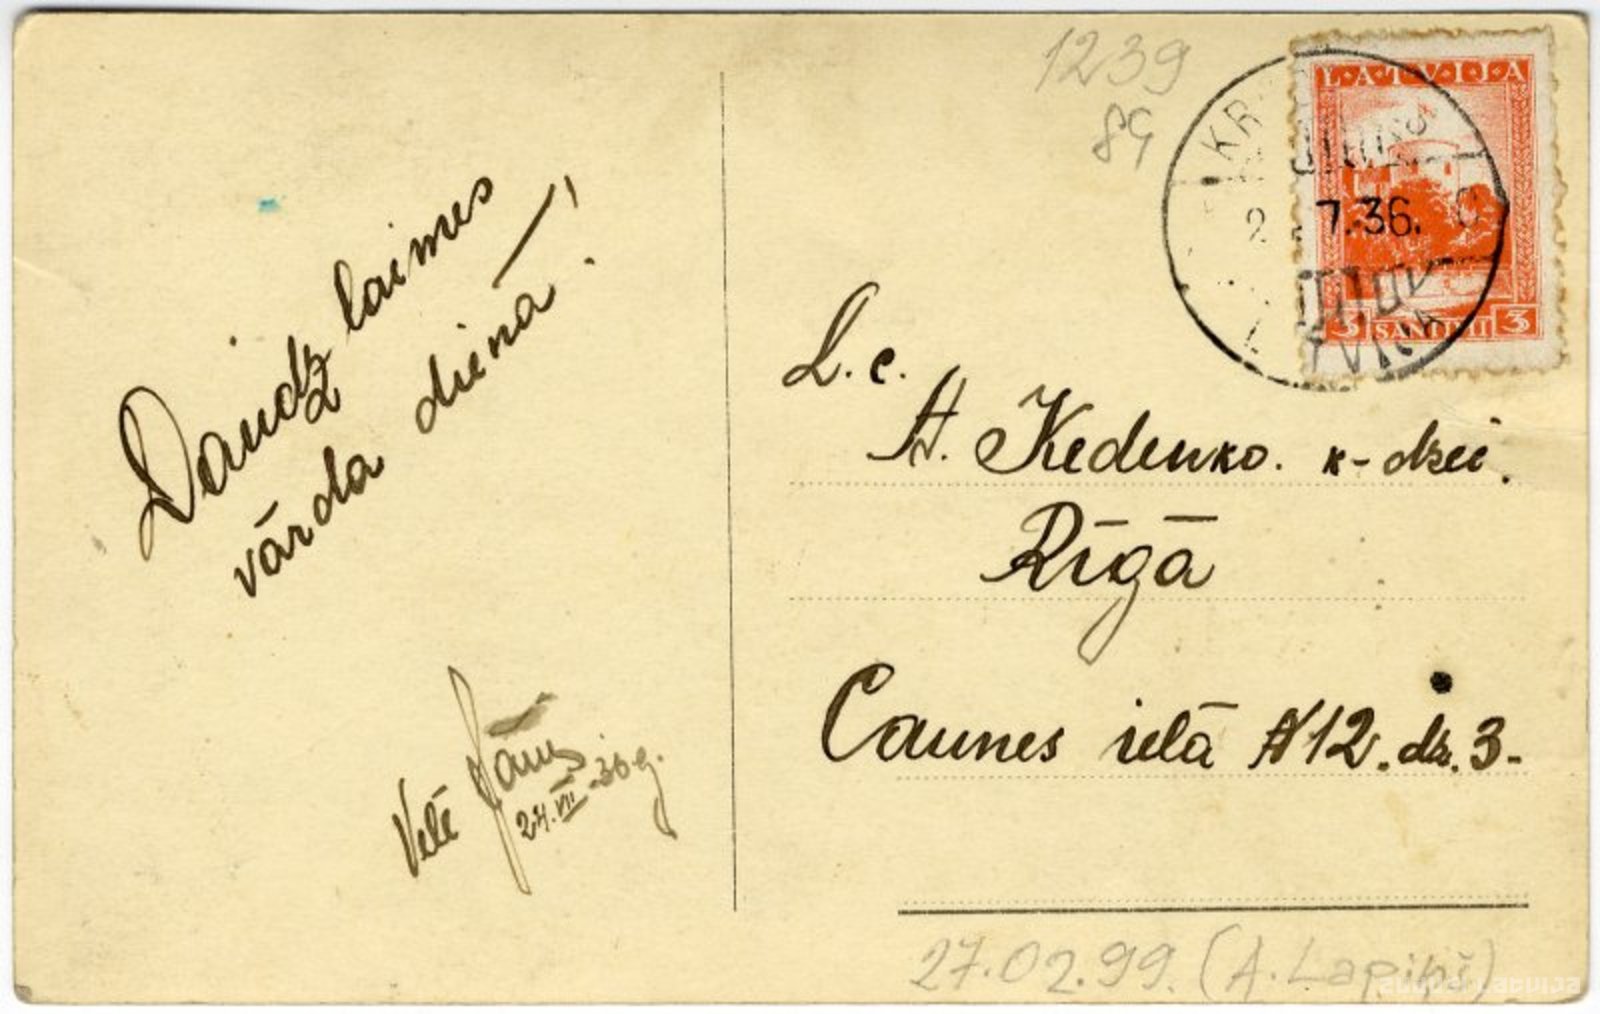 Daudz laimes
vārda dienā!
Vēlē Jānis
24.VII-36g.
1239
89
LATVIJA
3 SANTIMI 3
KR
2 7.36.
L TVIJA
L. c.
A. Kedenko. k-dzei.
Rīgā
Caunes ielā N12. dz. 3.-
27.02.99. (A. Lapiņš)
zudusilatvija